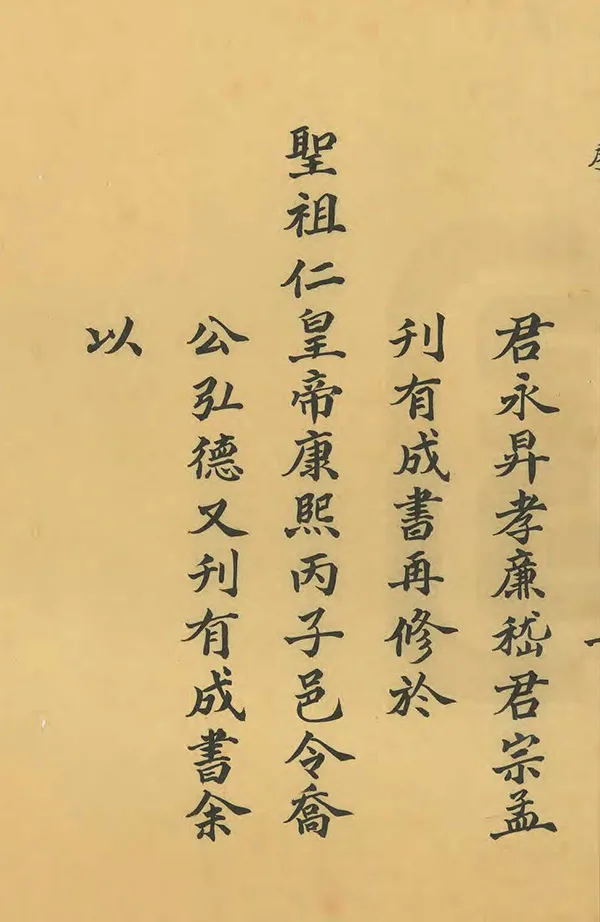 君永昇孝廉嵇君宗孟
刊有成書再修於
聖祖仁皇帝康熙丙子邑令喬
公弘德又刊有成書余
以